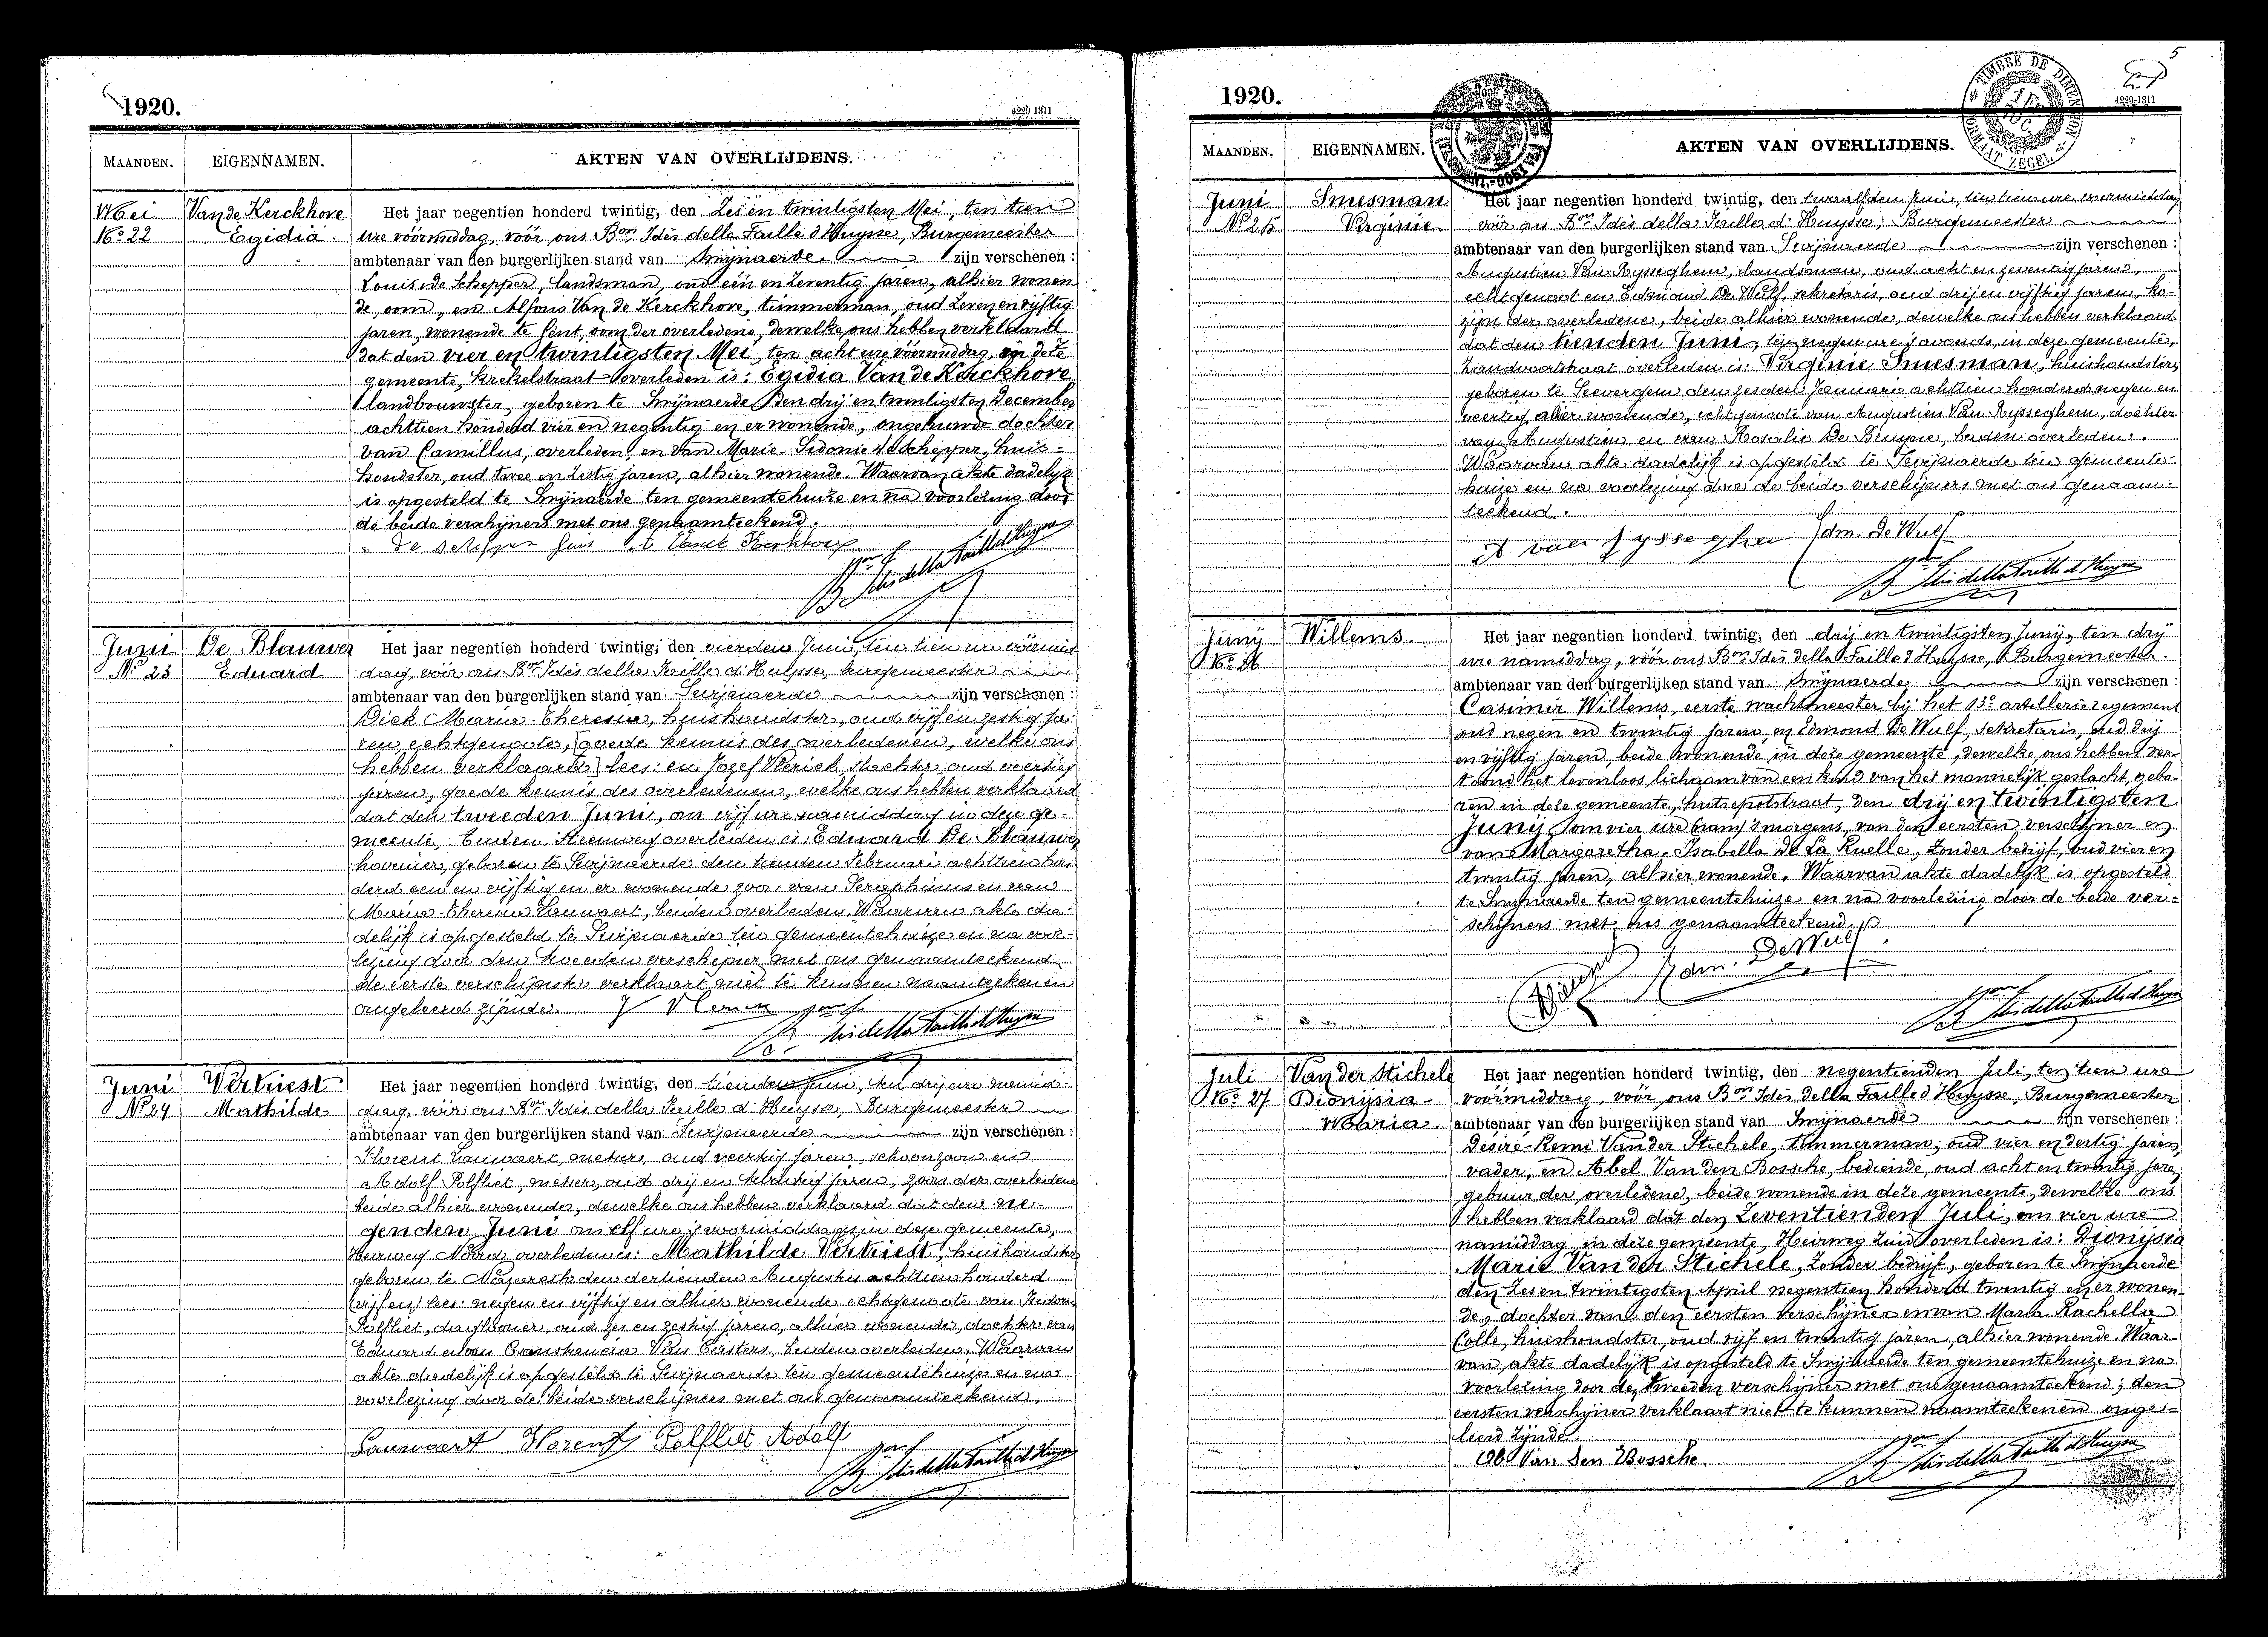 1920.
4229 1311
MAANDEN.
EIGENNAMEN.
AKTEN VAN OVERLIJDENS.
Mei
No 22
Van de Kerckhove
Egidia.
Het jaar negentien honderd twintig, den Zes en twintigsten Mei, ten tien
ure vóórmiddag, vóór ons Bon Idès della Faille d'Huysse, Burgemeester
ambtenaar van den burgerlijken stand van Swijnaerde zijn verschenen :
Louis de Schepper, landsman, oud één en zeventig jaren, alhier wonen
de, oom, en Alfons Van de Kerckhove, timmerman, oud zeven en vijftig
jaren, wonende te Gent, oom der overledene, dewelke ons hebben verklaard
dat den vier en twintigsten Mei, ten acht ure vóórmiddag, in deze
gemeente, Krekelstraat overleden is: Egidia Van de Kerckhove
landbouwster, geboren te Swijnaerde den drij en twintigsten December
achttien honderd vier en negentig en er wonende, ongehuwde dochter
van Camillus, overleden, en van Marie Sidonie de Schepper, huis-
houdster, oud twee en zestig jaren, alhier wonende. Waarvan akte dadelijk
is opgesteld te Swijnaerde ten gemeentehuize en na voorlezing door
de beide verschijners met ons genaamteekend.
Bon Idès della Faille d'Huysse
Juni
No 23
De Blauwe
Eduard
Het jaar negentien honderd twintig, den vierden Juni, ten tien ure vóórmid
dag, vóór ons Bon Idès della Faille d'Huysse, burgemeester
ambtenaar van den burgerlijken stand van Swijnaerde zijn verschenen :
Dick Maria Theresia, huishoudster, oud vijf en zestig ja-
ren echtgenoote, [goede kennis des overledenen, welke ons
hebben verklaard] lees: en Jozef Vlerick slachter, oud veertig
jaren, goede kennis des overledenen, welke ons hebben verklaard
dat den tweeden Juni, om vijf ure namiddag in deze ge-
meente, Buiten Steenweg overleden is: Eduard De Blauwe,
hovenier, geboren te Swijnaerde den tienden Februari achttien hon-
derd een en vijftig en er wonende zoon van Seraphinus en van
Maria Theresia Lauwaert, beiden overleden. Waarvan akte da-
delijk is opgesteld te Swijnaerde ten gemeentehuize en na voor-
lezing door den tweeden verschijner met ons genaamteekend
de eerste verschijnster verklaart niet te kunnen naamteekenen
ongeleerd zijnde. J Vlerick
Bon Idès della Faille d'Huysse
Juni
No 24
Vertriest
Mathilde
Het jaar negentien honderd twintig, den tienden Juni, ten drij ure namid-
dag, vóór ons Bon Idès della Faille d'Huysse, Burgemeester
ambtenaar van den burgerlijken stand van Swijnaerde zijn verschenen :
Florent Lauwaert, metser, oud veertig jaren, schoonzoon en
Adolf Polfliet, metser, oud drij en dertig jaren, zoon der overledene
beide alhier wonende, dewelke ons hebben verklaard dat den ne-
genden Juni om elf ure 's voormiddags in deze gemeente,
Heirweg Noord overleden is: Mathilde Vertriest, huishoudster
geboren te Nazareth den dertienden Augustus achttien honderd
(vijf en) lees: negen en vijftig en alhier wonende echtgenoote van
Polfliet, daglooner, oud zes en zestig jaren, alhier wonende, dochter van
Eduard en van Constancia Van Casters, beiden overleden. Waarvan
akte dadelijk is opgesteld te Swijnaerde ten gemeentehuize en na
voorlezing door de beide verschijners met ons genaamteekend.
Lauwaert Florent Polfliet Adolf
Bon Idès della Faille d'Huysse
1920.
5
4229-1311
TIMBRE DE DIMENSION
FORMAAT ZEGEL
MAANDEN.
EIGENNAMEN.
AKTEN VAN OVERLIJDENS.
Juni
No 25
Smesman
Virginie
Het jaar negentien honderd twintig, den twaalfden Juni, ten tien ure voormiddag
vóór ons Bon Idès della Faille d'Huysse, Burgemeester
ambtenaar van den burgerlijken stand van Swijnaerde zijn verschenen :
Augustien Van Rysseghem, landsman, oud acht en zeventig jaren,
echtgenoot en Edmond De Wulf, sekretaris, oud drij en vijftig jaren, ko-
zijn der overledene, beide alhier wonende, dewelke ons hebben verklaard
dat den tienden Juni, ten negen ure 's avonds, in deze gemeente,
Zandvoortstraat overleden is: Virginie Smesman, huishoudster,
geboren te Seevergem den zesden Januari achttien honderd negen en
veertig alhier wonende, echtgenoote van Augustien Van Rysseghem, dochter
van Augustien en van Rosalie De Bruyne, beiden overleden.
Waarvan akte dadelijk is opgesteld te Swijnaerde ten gemeente-
huize en na voorlezing door de beide verschijners met ons genaam-
teekend.
Edm. De Wulf
Bon Idès della Faille d'Huysse
Junij
No 26
Willems.
Het jaar negentien honderd twintig, den drij en twintigsten Junij, ten drij
ure namiddag, vóór ons Bon Idès della Faille d'Huysse, Burgemeester.
ambtenaar van den burgerlijken stand van Swijnaerde zijn verschenen :
Casimir Willems, eerste wachtmeester bij het 13e artillerie regiment
oud negen en twintig jaren, en Edmond De Wulf, sekretaris, oud drij
en vijftig jaren, beide wonende in deze gemeente, dewelke ons hebben ver-
toond het levenloos lichaam van een kind van het mannelijk geslacht, gebo-
ren in deze gemeente, Hutsepotstraat, den drij en twintigsten
Junij om vier ure (nam) 's morgens, van den eersten verschijner en
van Margaretha Isabella De La Ruelle, zonder bedrijf, oud vier en
twintig jaren, alhier wonende. Waarvan akte dadelijk is opgesteld
te Swijnaerde ten gemeentehuize en na voorlezing door de beide ver-
schijners met ons genaamteekend.
Edm. De Wulf.
Bon Idès della Faille d'Huysse
Juli
No 27
Van der Stichele
Dionysia-
Maria.
Het jaar negentien honderd twintig, den negentienden Juli, ten tien ure
vóórmiddag, vóór ons Bon Idès della Faille d'Huysse, Burgemeester
ambtenaar van den burgerlijken stand van Swijnaerde zijn verschenen :
Desiré-Remi Van der Stichele, timmerman, oud vier en dertig jaren,
vader, en Abel Van den Bossche, bediende, oud acht en twintig jaren
gebuur der overledene, beide wonende in deze gemeente, dewelke ons
hebben verklaard dat den Zeventienden Juli, om vier ure
namiddag, in deze gemeente, Heirweg Zuid overleden is: Dionysia
Marie Van der Stichele, zonder bedrijf, geboren te Swijnaerde
den zes en twintigsten April negentien honderd twintig en er wonen-
de, dochter van den eersten verschijner en van Maria Rachella
Colle, huishoudster, oud vijf en twintig jaren, alhier wonende. Waar-
van akte dadelijk is opgesteld te Swijnaerde ten gemeentehuize en na
voorlezing door den tweeden verschijner met ons genaamteekend; den
eersten verschijner verklaart niet te kunnen naamteekenen onge-
leerd zijnde.
Ab Van Den Bossche.
Bon Idès della Faille d'Huysse